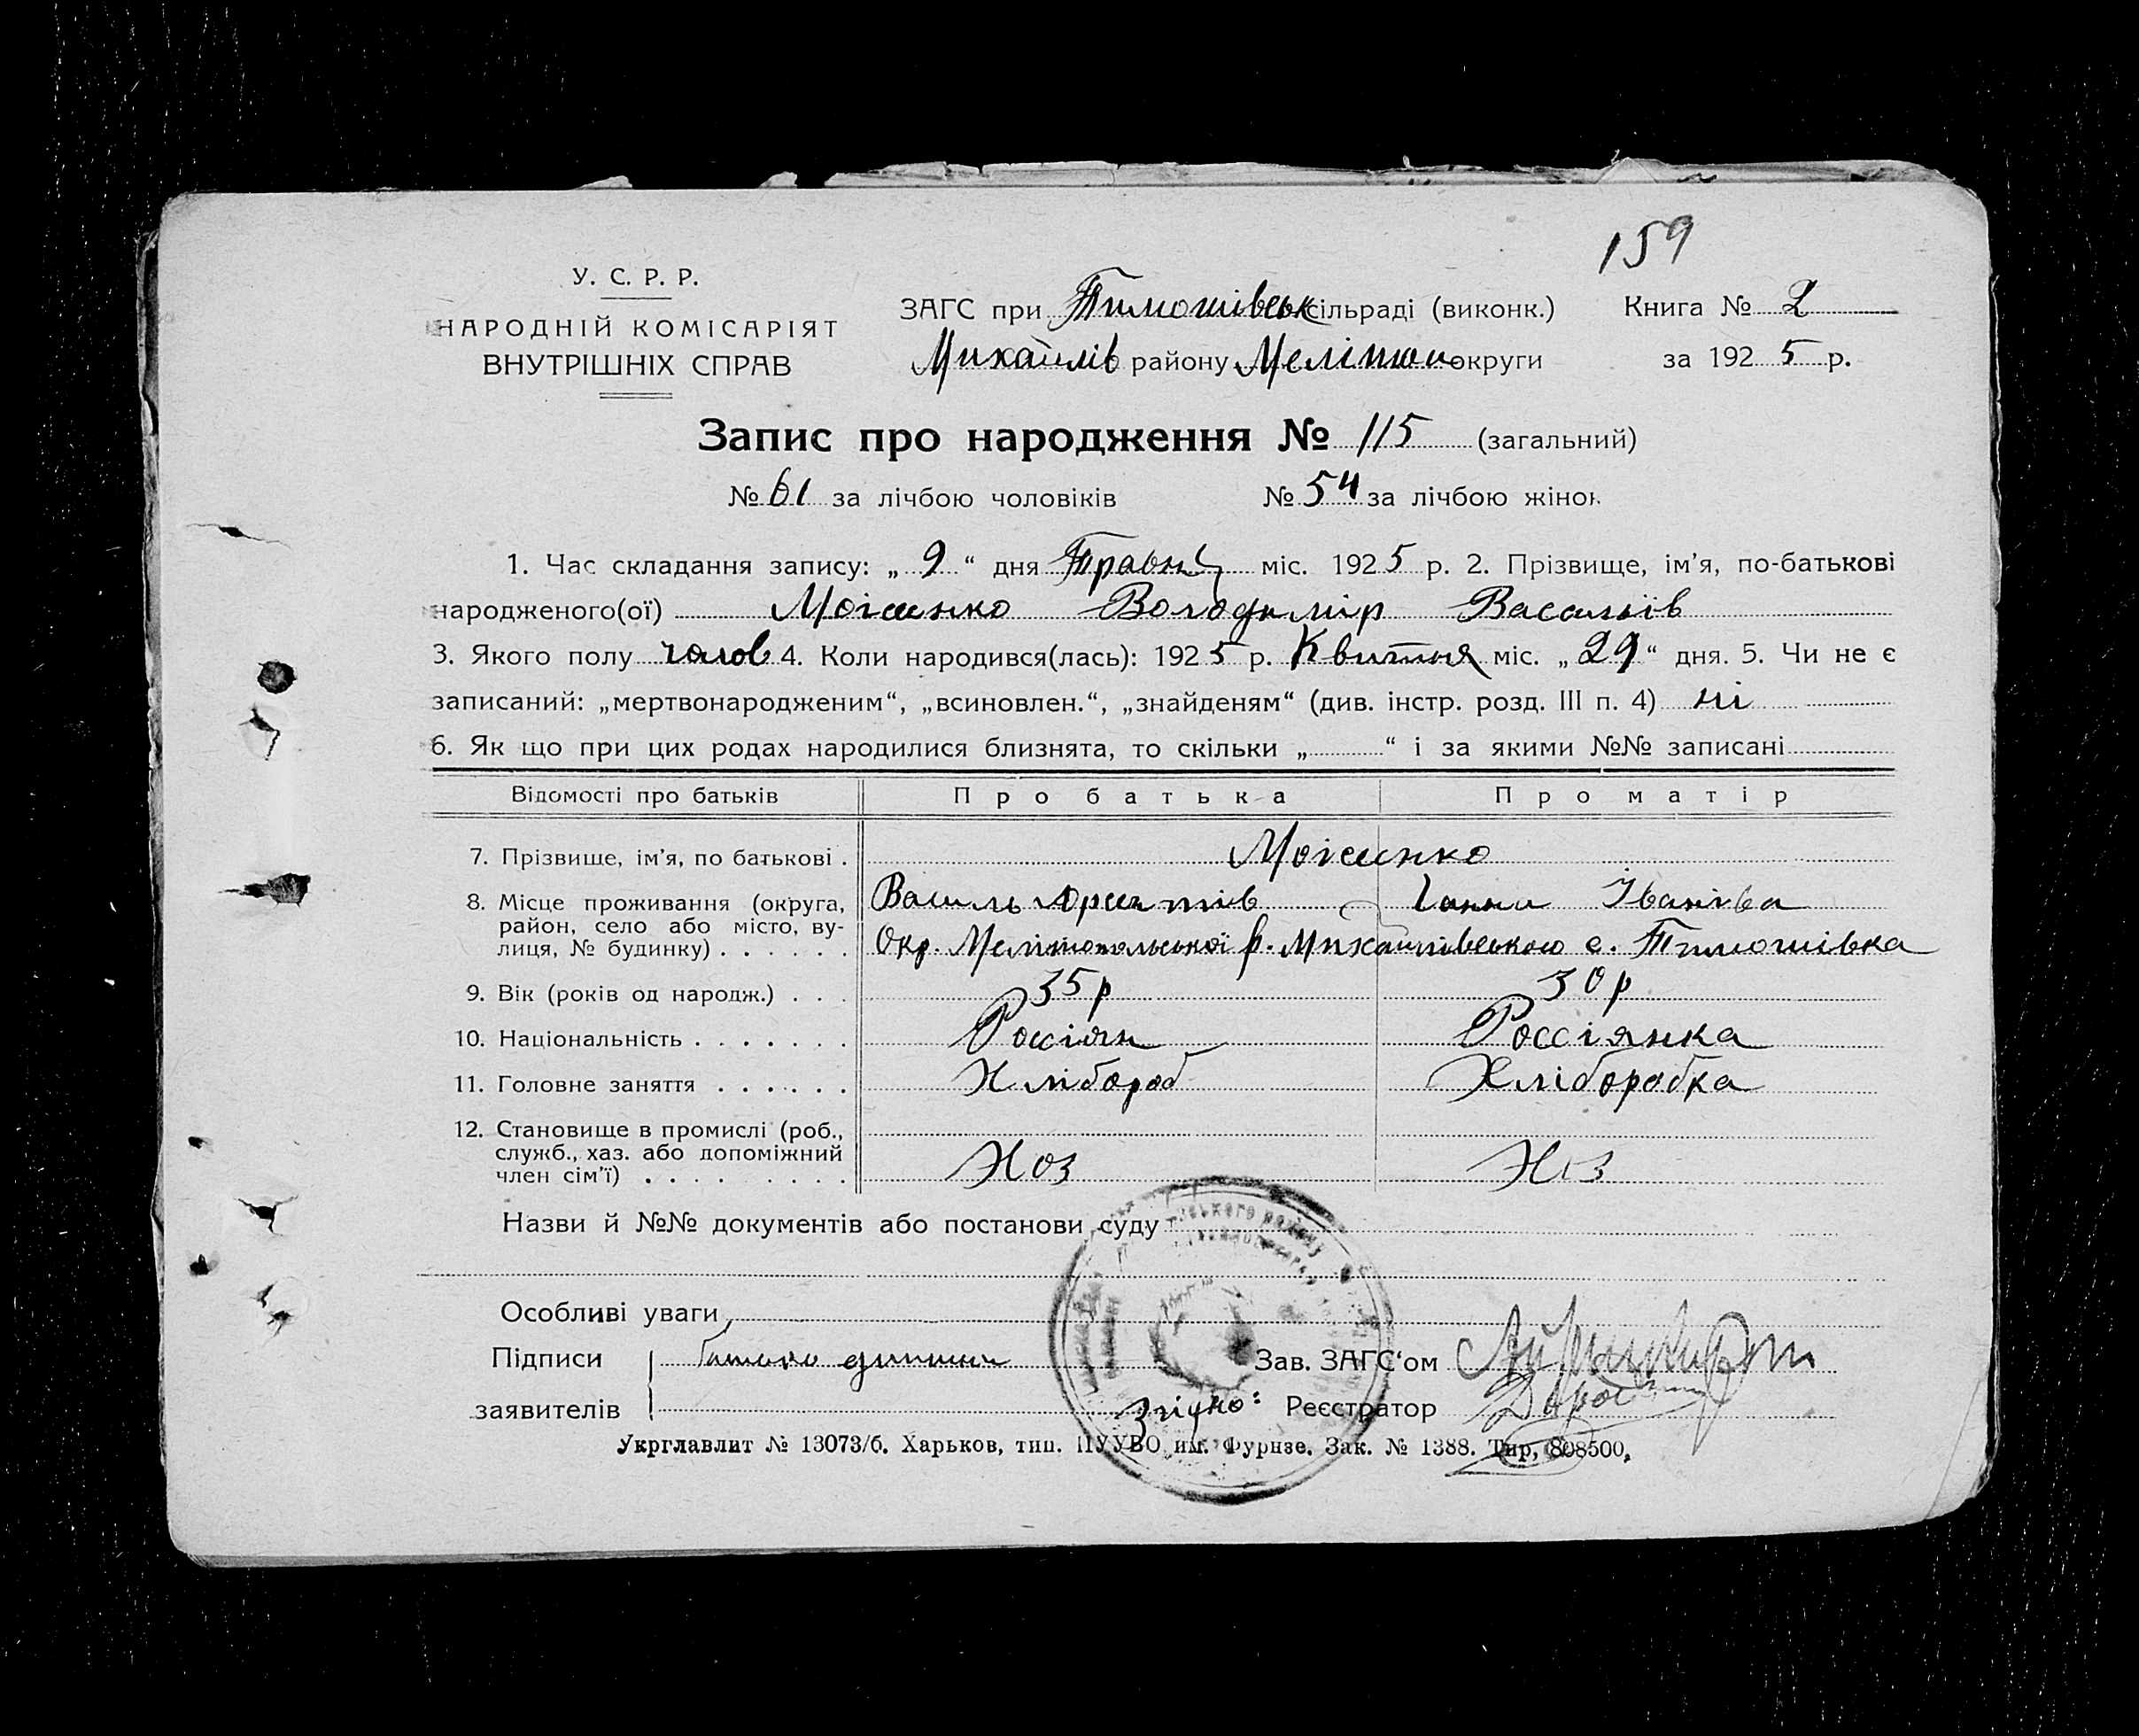 159
У. С. Р. Р.
НАРОДНІЙ КОМІСАРІЯТ
ВНУТРІШНІХ СПРАВ
ЗАГС при Тимошівськ сільраді (виконк.) Книга № 2
Михайлів району Мелітоп округи за 1925 р.
Запис про народження № 115 (загальний)
№ 61 за лічбою чоловіків № 54 за лічбою жінок
1. Час складання запису: „ 9 “ дня Травня міс. 1925 р. 2. Прізвище, ім’я, по-батькові
народженого(ої) Моісенко Володимір Васильів
3. Якого полу чолов 4. Коли народився(лась): 1925 р. Квитня міс. „29“ дня. 5. Чи не є
записаний: „мертвонародженим“, „всиновлен.“, „знайденям“ (див. інстр. розд. III п. 4) ні
6. Як що при цих родах народилися близнята, то скільки „ “ і за якими №№ записані
Відомості про батьків Про батька Про матір
7. Прізвище, ім’я, по батькові . Моісенко
Василь Ганна Іванівна
8. Місце проживання (округа, район, село або місто, вулиця, № будинку) . . . . . . Окр. Мелітопольської р. Михайлівського с. Тимошівка
9. Вік (років од народж.) . . . 35 р 30 р
10. Національність . . . . . . . Россіян Россіянка
11. Головне заняття . . . . . . Хлібороб Хліборобка
12. Становище в промислі (роб.,
служб., хаз. або допоміжний
член сім’ї) . . . . . . . . Хоз Хоз
Назви й №№ документів або постанови суду
Особливі уваги
Підписи Зав. ЗАГС‘ом
заявителів Згідно: Реєстратор
Укрглавлит № 13073/б. Харьков, тип. ПУУВО им. Фрунзе. Зак. № 1388. Тир, 808500,